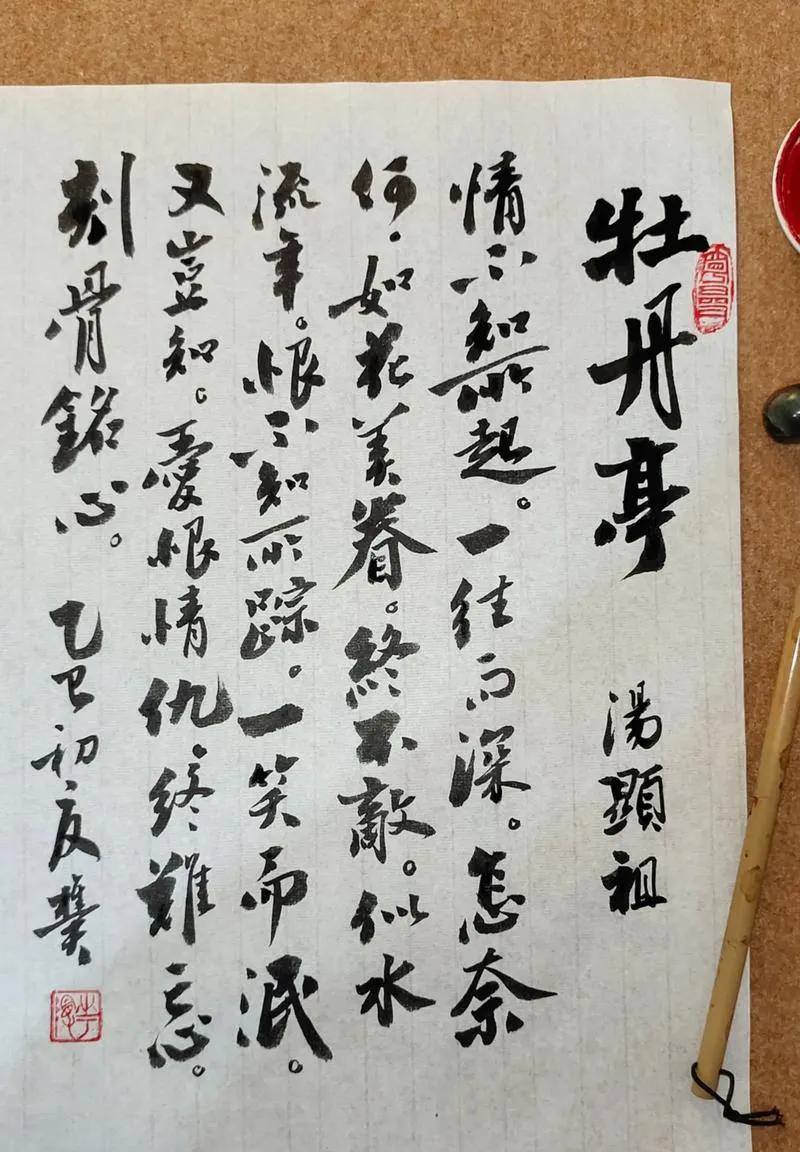 牡丹亭 湯顯祖
情不知所起。一往而深。怎奈
何。如花美眷。終不敵。似水
流年。恨不知所踪。一笑而泯。
又豈知。愛恨情仇終難忘。
刻骨銘心。乙巳初夏龔